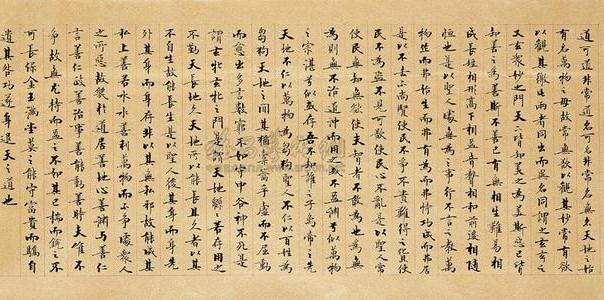 道可道非常道名可名非常名無名天地之始
有名萬物之母故常無欲以觀其妙常有欲
以觀其徼此兩者同出而異名同謂之玄玄之
又玄衆妙之門天下皆知美之為美斯惡已皆
知善之為善斯不善已有無相生難易相
成長短相形高下相盈音聲相和前後相隨
恒也是以聖人處無為之事行不言之教萬
物作而弗始生而弗有為而弗恃功成而弗居
是以不去不尚賢使民不爭不貴難得之貨使
民不為盜不見可欲使民心不亂是以聖人常
使民無知無欲使夫智者不敢為也為無
為則無不治道沖而用之或不盈淵兮似萬物
之宗湛兮似或存吾不知誰之子象帝之先
天地不仁以萬物為芻狗聖人不仁以百姓為
芻狗天地之間其猶橐籥乎虛而不屈動
而愈出多言數窮不如守中谷神不死是
謂玄牝玄牝之門是謂天地根綿綿若存用之
不勤天長地久天地所以能長且久者以其
不自生故能長生是以聖人後其身而身先
外其身而身存非以其無私邪故能成其
私上善若水水善利萬物而不爭處衆人
之所惡故幾於道居善地心善淵與善仁
言善信政善治事善能動善時夫唯不
爭故無尤持而盈之不如其已揣而銳之不
可長保金玉滿堂莫之能守富貴而驕自
遺其咎功遂身退天之道也